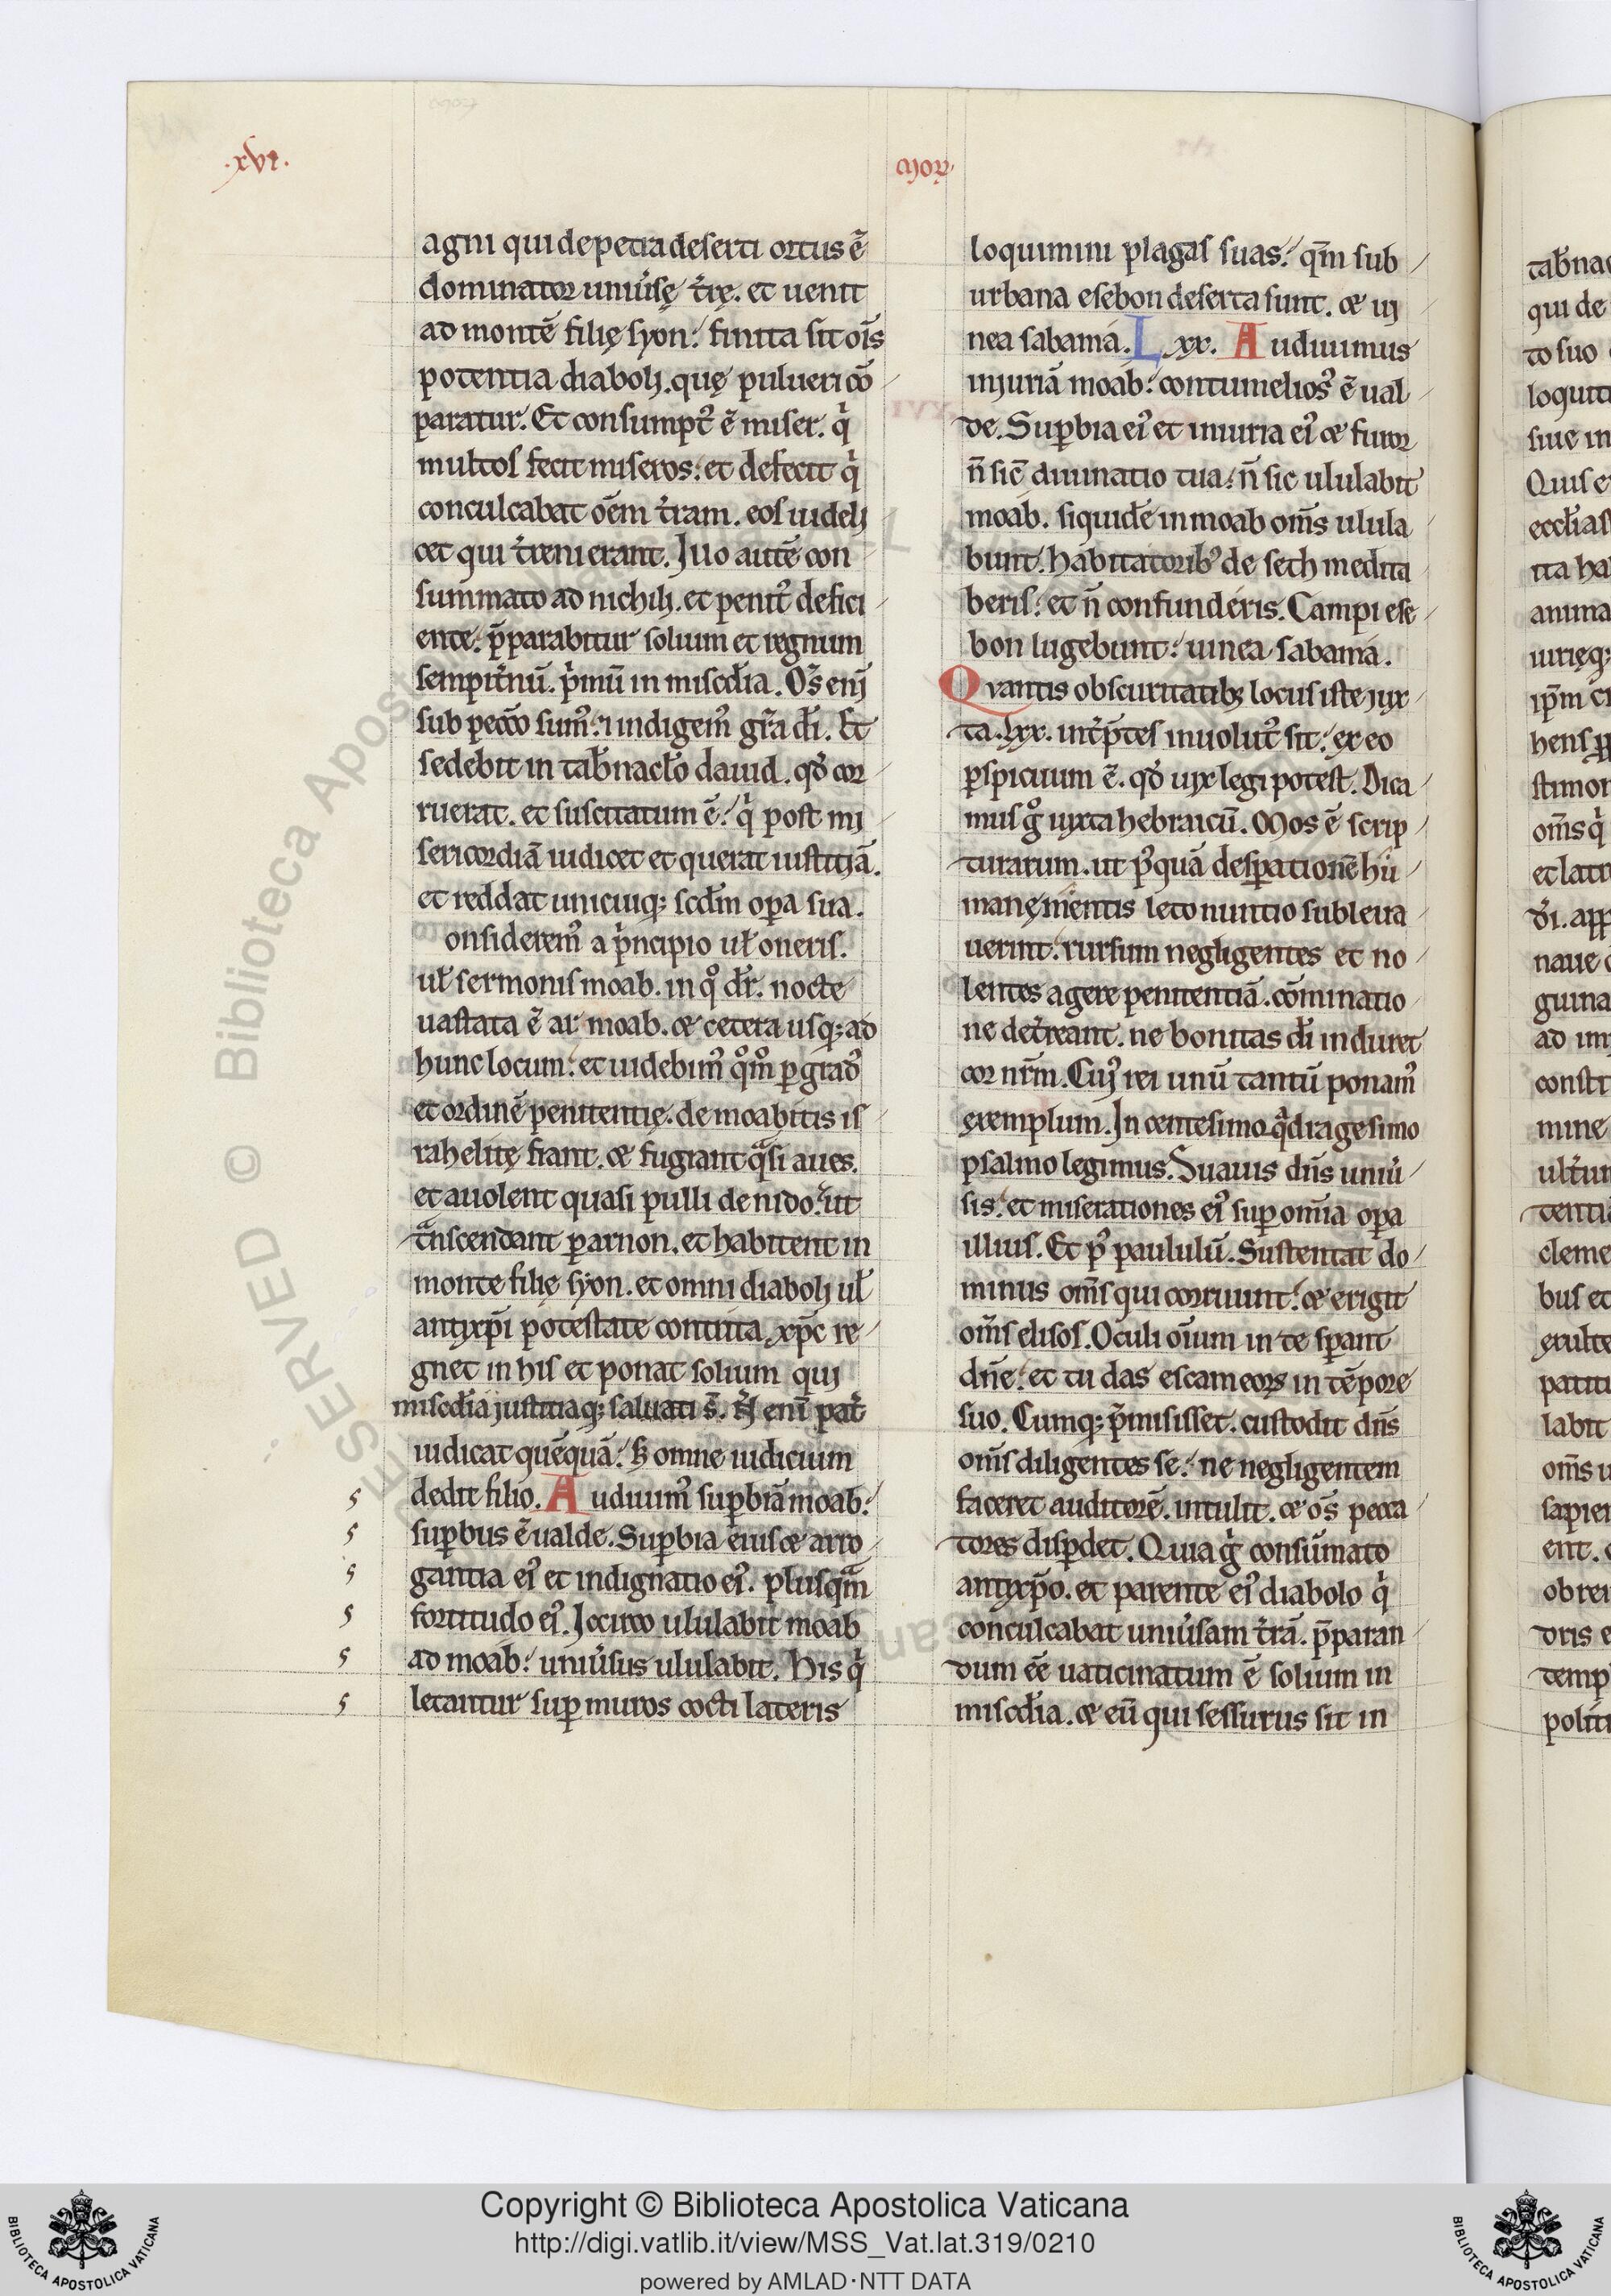 .xvi.
agni qui de petra deserti ortus ē
dominator uniu̾sę t̾rę. et uenit
ad montē filię syon: finita sit oīs
potentia diaboli. quę pulueri cō
paratur. Et consumpt᷒ ē miser. qͥ
multos fecit miseros: et defecit qͥ
conculcabat oēm t̾ram. eos uideli
cet qui t̾reni erant. Illo autē con
summato ad nichili. et penit᷒ defici
ente: p̄parabitur solium et regnum
sempit̾nū. pͥmū in misc̄dia. Oēs eni
sub pecc̄o sum᷒: ⁊ indigem᷒ gr̄a dī. Et
sedebit in tab̾nacl̄o dauid. qđ cor
ruerat. et suscitatum ē: qͥ post mi
sericordiā iudicet et querat iustitiā.
et reddat unicuiq; scđm oꝑa sua.
onsiderem᷒ a pͥncipio uł oneris.
uł sermonis moab. in qͦ dr̄. nocte
uastata ē ar moab. & cetera usq; ad
hunc locum: et uidebim᷒ qͦm̊ ꝑ grad᷒
et ordinē penitentię. de moabitis is
rahelitę fiant. & fugiant qͣsi aues.
et auolent quasi pulli de nido: ut
tͣnscendant ꝑ arnon. et habitent in
monte filię syon. et omni diaboli uł
antixp̄i potestate contrita. xp̄c re
gnet in his et ponat solium qui
misc̄dia iustitiaq; saluati s̄. N̄ enī pat̾
iudicat quēquā: s; omne iudicium
dedit filio. Audiuim᷒ suꝑbiā moab:
suꝑbus ē ualde. Suꝑbia eius & arro
gantia ei᷒ et indignatio ei᷒. plusqͣm
fortitudo ei᷒. Iccirco ululabit moab
ad moab: uniu̾sus ululabit. His qͥ
letantur suꝑ muros cocti lateris
loquimini plagas suas: qm̄ sub
urbana esebon deserta sunt. & ui
nea sabama. Lxx. Audiuimus
iniuriā moab: contumelios᷒ ē ual
de. Suꝑbia ei᷒ et iniuria ei᷒ & furor
n̄ sic̄ diuinatio tua: n̄ sic ululabit
moab. siquidē in moab om̄s ulula
bunt. habitatorib᷒ de seth medita
beris: et n̄ confunderis. Campi ese
bon lugebunt: uinea sabama.
Qvantis obscuritatib; locus iste iux
ta .lxx. int̾p̄tes inuolut᷒ sit: ex eo
ꝑspicuum ē. qđ uix legi potest. Dica
mus gͦ iuxta hebraicū. Mos ē scrip
turarum. ut p᷒quā desꝑationē hu
manę mentis leto nuntio subleua
uerint: rursum negligentes et no
lentes agere penitentiā. cōminatio
ne det̾reant. ne bonitas dī induret
cor nr̄m. Cui᷒ rei unū tantū ponam᷒
exemplum. In centesimo qͣdragesimo
psalmo legimus. Suauis dn̄s uniu̾
sis: et miserationes ei᷒ suꝑ om̄ia oꝑa
illius. Et p᷒ paululū. Sustentat do
minus om̄s qui corruunt: & erigit
om̄s elisos. Oculi oīum in te sꝑant
dn̄e: et tu das escam eorꝝ in tēpore
suo. Cumq; p̄misisset. custodit dn̄s
om̄s diligentes se: ne negligentem
faceret auditorē. intulit. & oēs pecca
tores disꝑdet. Quia gͦ consūmato
antixp̄o. et parente ei᷒ diabolo qͥ
conculcabat uniu̾sam t̾rā. p̄paran
dum eē uaticinatum ē solium in
misc̄dia. & eū qui sessurus sit in
tab̾nac
qui de
to suo
loquit
siue in
Quis e
eccl̄ias
ita ha
anima
stimon
om̄s qͥ
naue
guina
constit
mine
clem
bus et
labit
om̄s u
sapien
ent.
temp
Copyright © Biblioteca Apostolica Vaticana
http://digi.vatlib.it/view/MSS_Vat.lat.319/0210
powered by AMLAD·NTT DATA
BIBLIOTECA APOSTOLICA VATICANA
BIBLIOTECA APOSTOLICA VATICANA